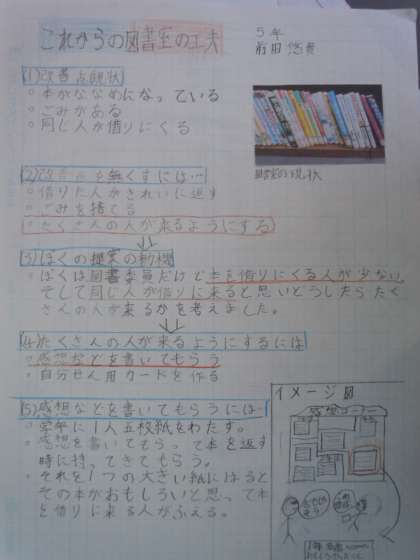 これからの図書室の工夫
5年
前田悠貴
(1)改善点現状
○本がななめになっている
○ごみがある
○同じ人が借りにくる
図書室の現状
(2)改善点を無くすには…
○借りた人がきれいに返す
○ごみを捨てる
○たくさんの人が来るようにする
(3)ぼくの提案の動機
○ぼくは図書委員だけど本を借りにくる人が少ない
そして同じ人が借りに来ると思いどうしたらたく
さんの人が来るかを考えました。
(4)たくさんの人が来るようにするには
○感想などを書いてもらう
○自分せん用カードを作る
(5)感想などを書いてもらうには…
○学年に1人五枚紙をわたす。
○感想を書いてもらって本を返す
時に持ってきてもらう。
○それを1つの大きい紙にはると
その本がおもしろいと思って本
を借りに来る人がふえる。
イメージ図
感想コーナー